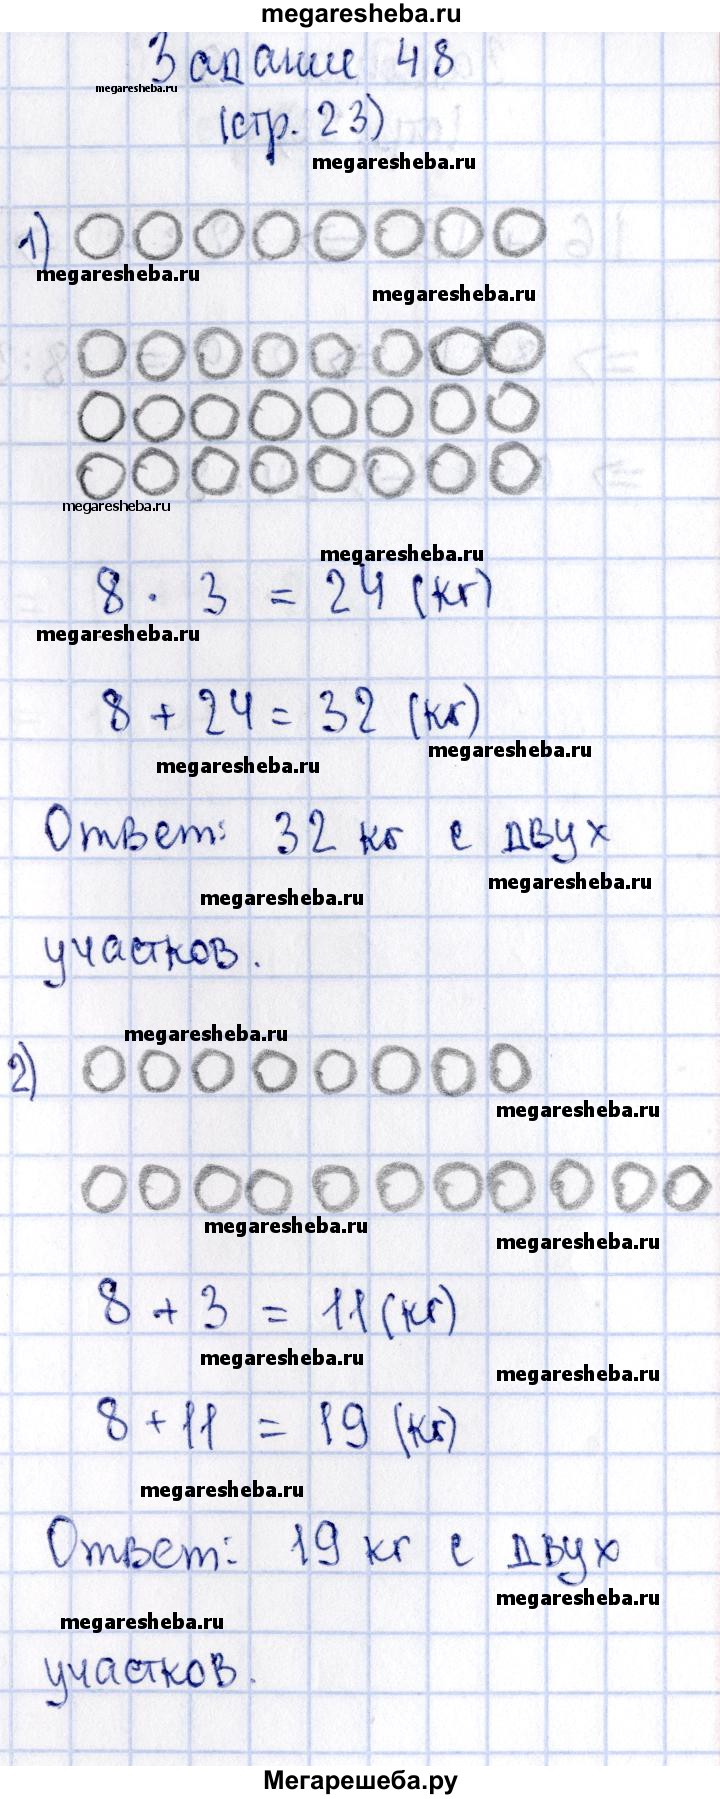 megaresheba.ru
Задание 48
megaresheba.ru
(стр. 23)
megaresheba.ru
1)
megaresheba.ru
megaresheba.ru
megaresheba.ru
megaresheba.ru
8 · 3 = 24 (кг)
megaresheba.ru
8 + 24 = 32 (кг)
megaresheba.ru
megaresheba.ru
Ответ: 32 кг с двух
megaresheba.ru
megaresheba.ru
участков.
megaresheba.ru
2)
megaresheba.ru
megaresheba.ru
megaresheba.ru
8 + 3 = 11 (кг)
megaresheba.ru
megaresheba.ru
8 + 11 = 19 (кг)
megaresheba.ru
Ответ: 19 кг с двух
megaresheba.ru
megaresheba.ru
участков.
Мегарешеба.ру